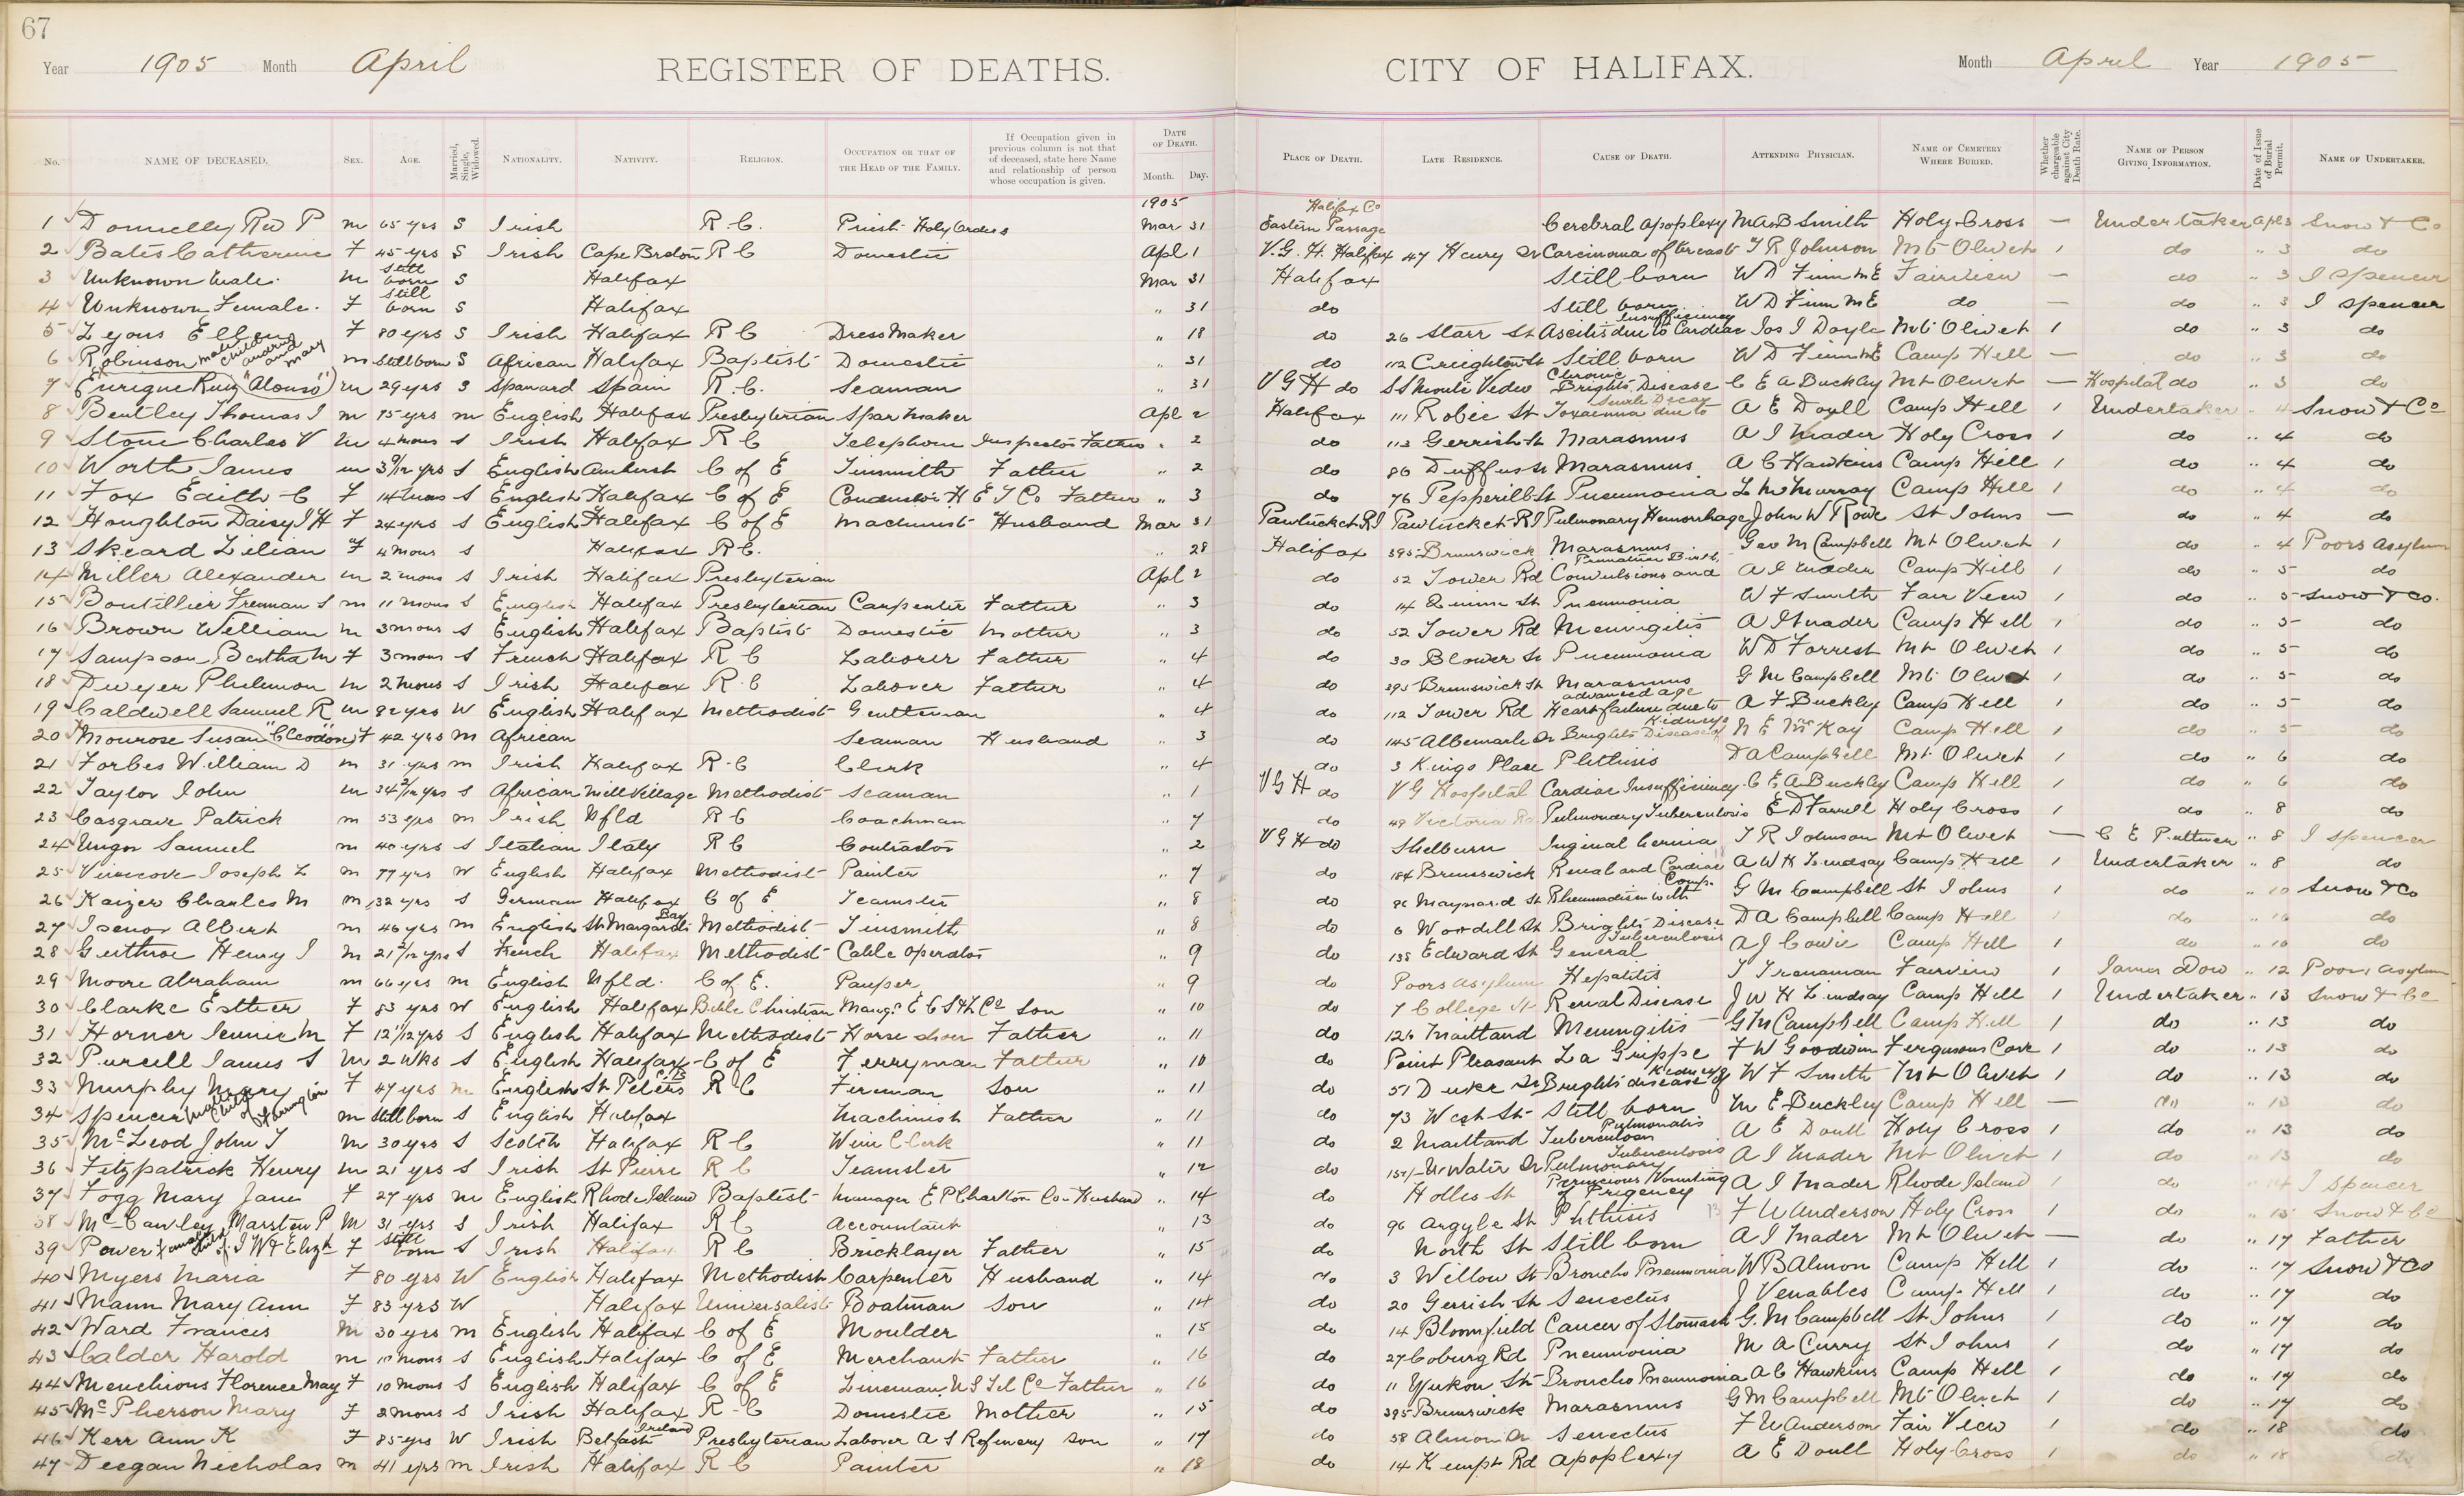 67
Year 1905 Month April REGISTER OF DEATHS. CITY OF HALIFAX. Month April Year 1905
No. NAME OF DECEASED. SEX. AGE. Married, Single, Widowed. NATIONALITY. NATIVITY. RELIGION. OCCUPATION OR THAT OF THE HEAD OF THE FAMILY. If Occupation given in previous column is not that of deceased, state here Name and relationship of person whose occupation is given. DATE OF DEATH. Month. Day. PLACE OF DEATH. LATE RESIDENCE. CAUSE OF DEATH. ATTENDING PHYSICIAN. NAME OF CEMETERY WHERE BURIED. Whether chargeable against City Death Rate. NAME OF PERSON GIVING INFORMATION. Date of Issue of Burial Permit. NAME OF UNDERTAKER.
1905
1 Donnelly Rev P m 65 yrs S Irish R.C. Priest Holy Orders Mar 31 Halifax Co Eastern Passage Cerebral Apoplexy M A B Smith Holy Cross — Undertaker Apl 3 Snow & Co
2 Bates Catherine F 45 yrs S Irish Cape Breton R C Domestic Apl 1 V.G.H. Halifax 47 Henry St Carcinoma of breast T R Johnson Mt Olivet 1 do " 3 do
3 Unknown Male m Still born S Halifax Mar 31 Halifax Still born W D Finn M E Fairview — do " 3 I Spencer
4 Unknown Female F Still born S Halifax " 31 do Still born W D Finn M E do — do " 3 I Spencer
5 Lyons Ellen F 80 yrs S Irish Halifax R C Dress Maker " 18 do 26 Starr St Ascitis due to Cardiac Insufficiency Jos I Doyle Mt Olivet 1 do " 3 do
6 Robinson male child of and Mary m Still born S African Halifax Baptist Domestic " 31 do 112 Creighton St Still born W D Finn M E Camp Hill — do " 3 do
7 Enrique Ruiz "Alonso" m 29 yrs S Spaniard Spain R.C. Seaman " 31 V G H do S S Monte Video Chronic Brights Disease C E A Buckley Mt Olivet — Hospital do " 3 do
8 Bentley Thomas I m 75 yrs m English Halifax Presbyterian Spar Maker Apl 2 Halifax 111 Robie St Toxaemia due to Senile Decay A E Doull Camp Hill 1 Undertaker " 4 Snow & Co
9 Stone Charles V m 4 mons S Irish Halifax R C Telephone Inspector Father " 2 do 113 Gerrish St Marasmus A I Mader Holy Cross 1 do " 4 do
10 Worth James m 3 9/12 yrs S English Amherst C of E Tinsmith Father " 2 do 86 Duffus St Marasmus A C Hawkins Camp Hill 1 do " 4 do
11 Fox Edith C F 14 mons S English Halifax C of E Conductor H E T Co Father " 3 do 76 Pepperill St Pneumonia L M Murray Camp Hill 1 do " 4 do
12 Houghton Daisy I H F 24 yrs S English Halifax C of E Machinist Husband Mar 31 Pawtucket RI Pawtucket RI Pulmonary Hemorrhage John W Rowe St Johns — do " 4 do
13 Skeard Lilian F 4 mons S Halifax R C. " 28 Halifax 395 Brunswick Marasmus Geo M Campbell Mt Olivet 1 do " 4 Poors Asylum
14 Miller Alexander m 2 mons S Irish Halifax Presbyterian Apl 2 do 52 Tower Rd Convulsions and Premature Birth A I Mader Camp Hill 1 do " 5 do
15 Boutillier Freeman S m 11 mons S English Halifax Presbyterian Carpenter Father " 3 do 14 St Pneumonia W F Smith Fair View 1 do " 5 Snow & Co.
16 Brown William m 3 mons S English Halifax Baptist Domestic Mother " 3 do 52 Tower Rd Meningitis A I Mader Camp Hill 1 do " 5 do
17 Sampson Bertha M F 3 mons S French Halifax R C Laborer Father " 4 do 30 Blower St Pneumonia W D Forrest Mt Olivet 1 do " 5 do
18 Dwyer Philemon m 2 mons S Irish Halifax R C Laborer Father " 4 do 395 Brunswick St Marasmus G M Campbell Mt Olivet 1 do " 5 do
19 Caldwell Samuel R m 82 yrs W English Halifax Methodist Gentleman " 4 do 112 Tower Rd Heart failure due to advanced age A F Buckley Camp Hill 1 do " 5 do
20 Monrose Susan "Cleodon" F 42 yrs m African Seaman Husband " 3 do 145 Albemarle St Brights Disease of Kidneys N E McKay Camp Hill 1 do " 5 do
21 Forbes William D m 31 yrs m Irish Halifax R C Clerk " 4 do 3 Kings Place Phthisis D A Campbell Mt Olivet 1 do " 6 do
22 Taylor John m 34 2/12 yrs S African Mill Village Methodist Seaman " 1 V G H do V G Hospital Cardiac Insufficiency C E A Buckley Camp Hill 1 do " 6 do
23 Casgrave Patrick m 53 yrs m Irish Nfld R C Coachman " 7 do 48 Victoria Rd Pulmonary Tuberculosis E D Farrell Holy Cross 1 do " 8 do
24 Ungo Samuel m 40 yrs S Italian Italy R C Contractor " 2 V G H do Shelburn Inginal hernia T R Johnson Mt Olivet — C E Puttner " 8 I Spencer
25 Vinecove Joseph L m 77 yrs W English Halifax Methodist Painter " 7 do 184 Brunswick Renal and Cardiac A W H Lindsay Camp Hill 1 Undertaker " 8 do
26 Kaizer Charles M m 32 yrs S German Halifax C of E Teamster " 8 do 86 Maynard St Rheumatism with Comp. G M Campbell St Johns 1 do " 10 Snow & Co
27 Isenor Albert m 46 yrs m English St Margarets Bay Methodist Tinsmith " 8 do 6 Woodell St Brights Disease D A Campbell Camp Hill 1 do " 10 do
28 Guthroe Henry I m 21 2/12 yrs S French Halifax Methodist Cable Operator " 9 do 138 Edward St General Tuberculosis A J Cowie Camp Hill 1 do " 10 do
29 Moore Abraham m 66 yrs m English Nfld. C of E. Pauper " 9 do Poors Asylum Hepatitis T Trenaman Fairview 1 James Dow " 12 Poors Asylum
30 Clarke Esther F 83 yrs W English Halifax Bible Christian Mangr E C S & L Co Son " 10 do 7 College St Renal Disease J W H Lindsay Camp Hill 1 Undertaker " 13 Snow & Co
31 Horner Jennie M F 12 11/12 yrs S English Halifax Methodist Horse shoer Father " 11 do 126 Maitland Meningitis G M Campbell Camp Hill 1 do " 13 do
32 Purcell James S m 2 wks S English Halifax C of E Ferryman Father " 10 do Point Pleasant La Grippe F W Goodwin Fergusons Cove 1 do " 13 do
33 Murphy Mary F 47 yrs m English St Peters C.B R C Fireman Son " 11 do 51 Duke St Brights disease of Kidneys W F Smith Mt Olivet 1 do " 13 do
34 Spencer Male Child of Harrington m Still born S English Halifax Machinist Father " 11 do 73 West St Still born M E Buckley Camp Hill — do " 13 do
35 McLeod John T m 30 yrs S Scotch Halifax R C Wine Clerk " 11 do 2 Maitland Tuberculosis Pulmonalis A E Doull Holy Cross 1 do " 13 do
36 Fitzpatrick Henry m 21 yrs S Irish St Pierre R C Teamster " 12 do Ur Water St Pulmonary Tuberculosis A I Mader Mt Olivet 1 do " 13 do
37 Fogg Mary Jane F 27 yrs m English Rhode Island Baptist Manager E P Charlton Co Husband " 14 do Hollis St Pernicious Vomiting of Pregency A I Mader Rhode Island 1 do " 14 I Spencer
38 McCawley Marsten P m 31 yrs S Irish Halifax R C Accountant " 13 do 96 Argyle St Phthisis F U Anderson Holy Cross 1 do " 15 Snow & Co
39 Power female child of J W & Elizh F Still born S Irish Halifax R C Bricklayer Father " 15 do North St Still born A I Mader Mt Olivet — do " 17 Father
40 Myers Maria F 80 yrs W English Halifax Methodist Carpenter Husband " 14 do 3 Willow St Broncho Pneumonia W B Almon Camp Hill 1 do " 17 Snow & Co
41 Mann Mary Ann F 83 yrs W Halifax Universalist Boatman Son " 14 do 20 Gerrish St Senectus J Venables Camp Hill 1 do " 17 do
42 Ward Francis m 30 yrs m English Halifax C of E Moulder " 15 do 14 Bloomfield Cancer of Stomach G. M Campbell St Johns 1 do " 17 do
43 Calder Harold m 10 mons S English Halifax C of E Merchant Father " 16 do 27 Coburg Rd Pneumonia M A Curry St Johns 1 do " 17 do
44 Menchions Florence May F 10 mons S English Halifax C of E Lineman N S Tel Co Father " 16 do 11 Yukon St Broncho Pneumonia A C Hawkins Camp Hill 1 do " 17 do
45 McPherson Mary F 2 mons S Irish Halifax R C Domestic Mother " 15 do 395 Brunswick Marasmus G M Campbell Mt Olivet 1 do " 17 do
46 Kerr Ann K F 85 yrs W Irish Belfast Ireland Presbyterian Labover A S Refinery Son " 17 do 58 Almon St Senectus F U Anderson Fair View 1 do " 18 do
47 Deegan Nicholas m 41 yrs m Irish Halifax R C Painter " 18 do 14 Kempt Rd Apoplexy A E Doull Holy Cross 1 do " 18 do